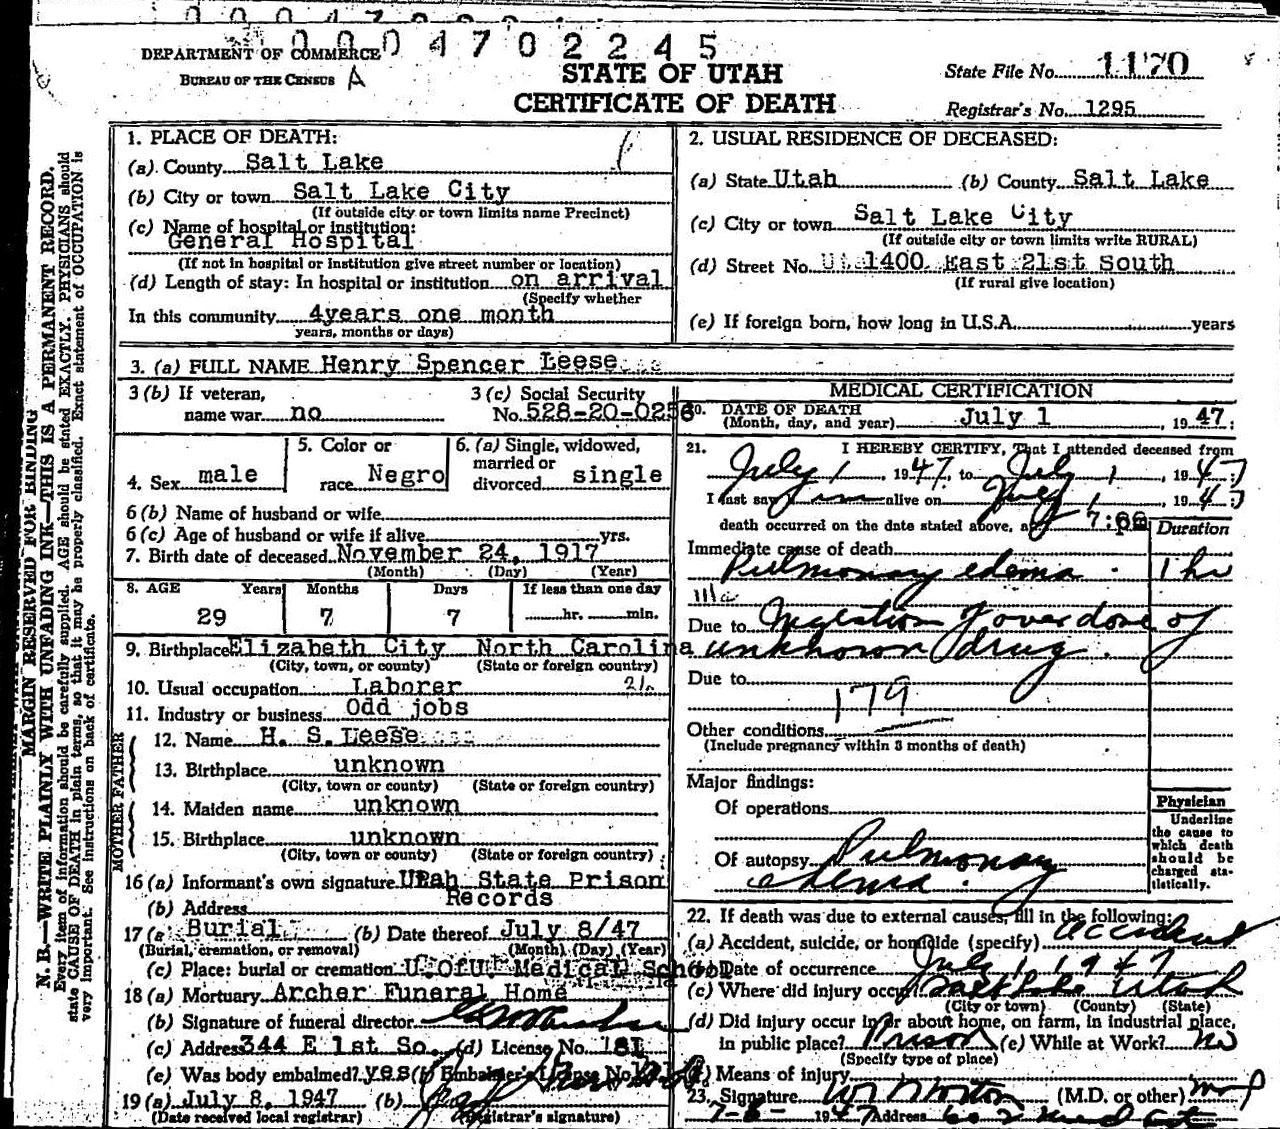 0004702245
DEPARTMENT OF COMMERCE
BUREAU OF THE CENSUS A
STATE OF UTAH
CERTIFICATE OF DEATH
State File No. 1170
Registrar's No. 1295
MARGIN RESERVED FOR BINDING
N. B.—WRITE PLAINLY WITH UNFADING INK—THIS IS A PERMANENT RECORD.
Every item of information should be carefully supplied. AGE should be stated EXACTLY. PHYSICIANS should
state CAUSE OF DEATH in plain terms, so that it may be properly classified. Exact statement of OCCUPATION is
very important. See instructions on back of certificate.
1. PLACE OF DEATH:
(a) County Salt Lake
(b) City or town Salt Lake City
(If outside city or town limits name Precinct)
(c) Name of hospital or institution:
General Hospital
(If not in hospital or institution give street number or location)
(d) Length of stay: In hospital or institution on arrival
(Specify whether
In this community 4years one month
years, months or days)
2. USUAL RESIDENCE OF DECEASED:
(a) State Utah (b) County Salt Lake
(c) City or town Salt Lake City
(If outside city or town limits write RURAL)
(d) Street No. 1400 East 21st South
(If rural give location)
(e) If foreign born, how long in U.S.A. years
3. (a) FULL NAME Henry Spencer Leese
3 (b) If veteran,
name war no
3 (c) Social Security
No. 528-20-0256
4. Sex male
5. Color or
race Negro
6. (a) Single, widowed,
married or
divorced single
6 (b) Name of husband or wife
6 (c) Age of husband or wife if alive yrs.
7. Birth date of deceased November 24, 1917
(Month) (Day) (Year)
8. AGE Years Months Days If less than one day
29 7 7 hr. min.
9. Birthplace Elizabeth City North Carolina
(City, town, or county) (State or foreign country)
10. Usual occupation Laborer
11. Industry or business Odd jobs
FATHER
12. Name H. S. Leese
13. Birthplace unknown
(City, town or county) (State or foreign country)
MOTHER
14. Maiden name unknown
15. Birthplace unknown
(City, town or county) (State or foreign country)
16 (a) Informant's own signature Utah State Prison
Records
(b) Address
17 (a Burial (b) Date thereof July 8/47
(Burial, cremation, or removal) (Month) (Day) (Year)
(c) Place: burial or cremation U.OfU. Medical School
18 (a) Mortuary Archer Funeral Home
(b) Signature of funeral director
(c) Address 344 E 1st So. (d) License No. 181
(e) Was body embalmed? yes (f) Embalmer's License No.
19 (a) July 8, 1947 (b)
(Date received local registrar) (Registrar's signature)
MEDICAL CERTIFICATION
20. DATE OF DEATH
(Month, day, and year) July 1 , 1947;
21. I HEREBY CERTIFY, That I attended deceased from
July 1, 1947, to July 1, 1947
I last saw him alive on July 1, 1947
death occurred on the date stated above, at 7:00 pm
Duration
Immediate cause of death
Pulmonary edema. 1 hr
Due to Ingestion of overdose of
unknown drug.
Due to
179
Other conditions
(Include pregnancy within 3 months of death)
Major findings:
Of operations
Of autopsy Pulmonary
edema.
Physician
Underline
the cause to
which death
should be
charged sta-
tistically.
22. If death was due to external causes, fill in the following:
(a) Accident, suicide, or homicide (specify) Accident
(b) Date of occurrence July 1 1947
(c) Where did injury occur? Salt Lake Utah
(City or town) (County) (State)
(d) Did injury occur in or about home, on farm, in industrial place,
in public place? Prison (e) While at Work? no
(Specify type of place)
(f) Means of injury
23. Signature (M.D. or other) MD
1947 Address